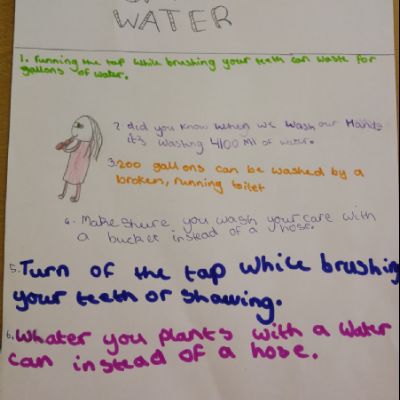 WATER
1. Running the tap while brushing your teeth can waste for
gallons of water.
2 did you know when we wash our Hands
it's washing 4100 Ml of water.
3.200 gallons can be washed by a
broken, running toilet
4. Make shure you wash your care with
a bucket instead of a hose.
5.Turn of the tap while brushing
your teeth or shaving.
6.Whater you plants with a water
can instead of a hose.